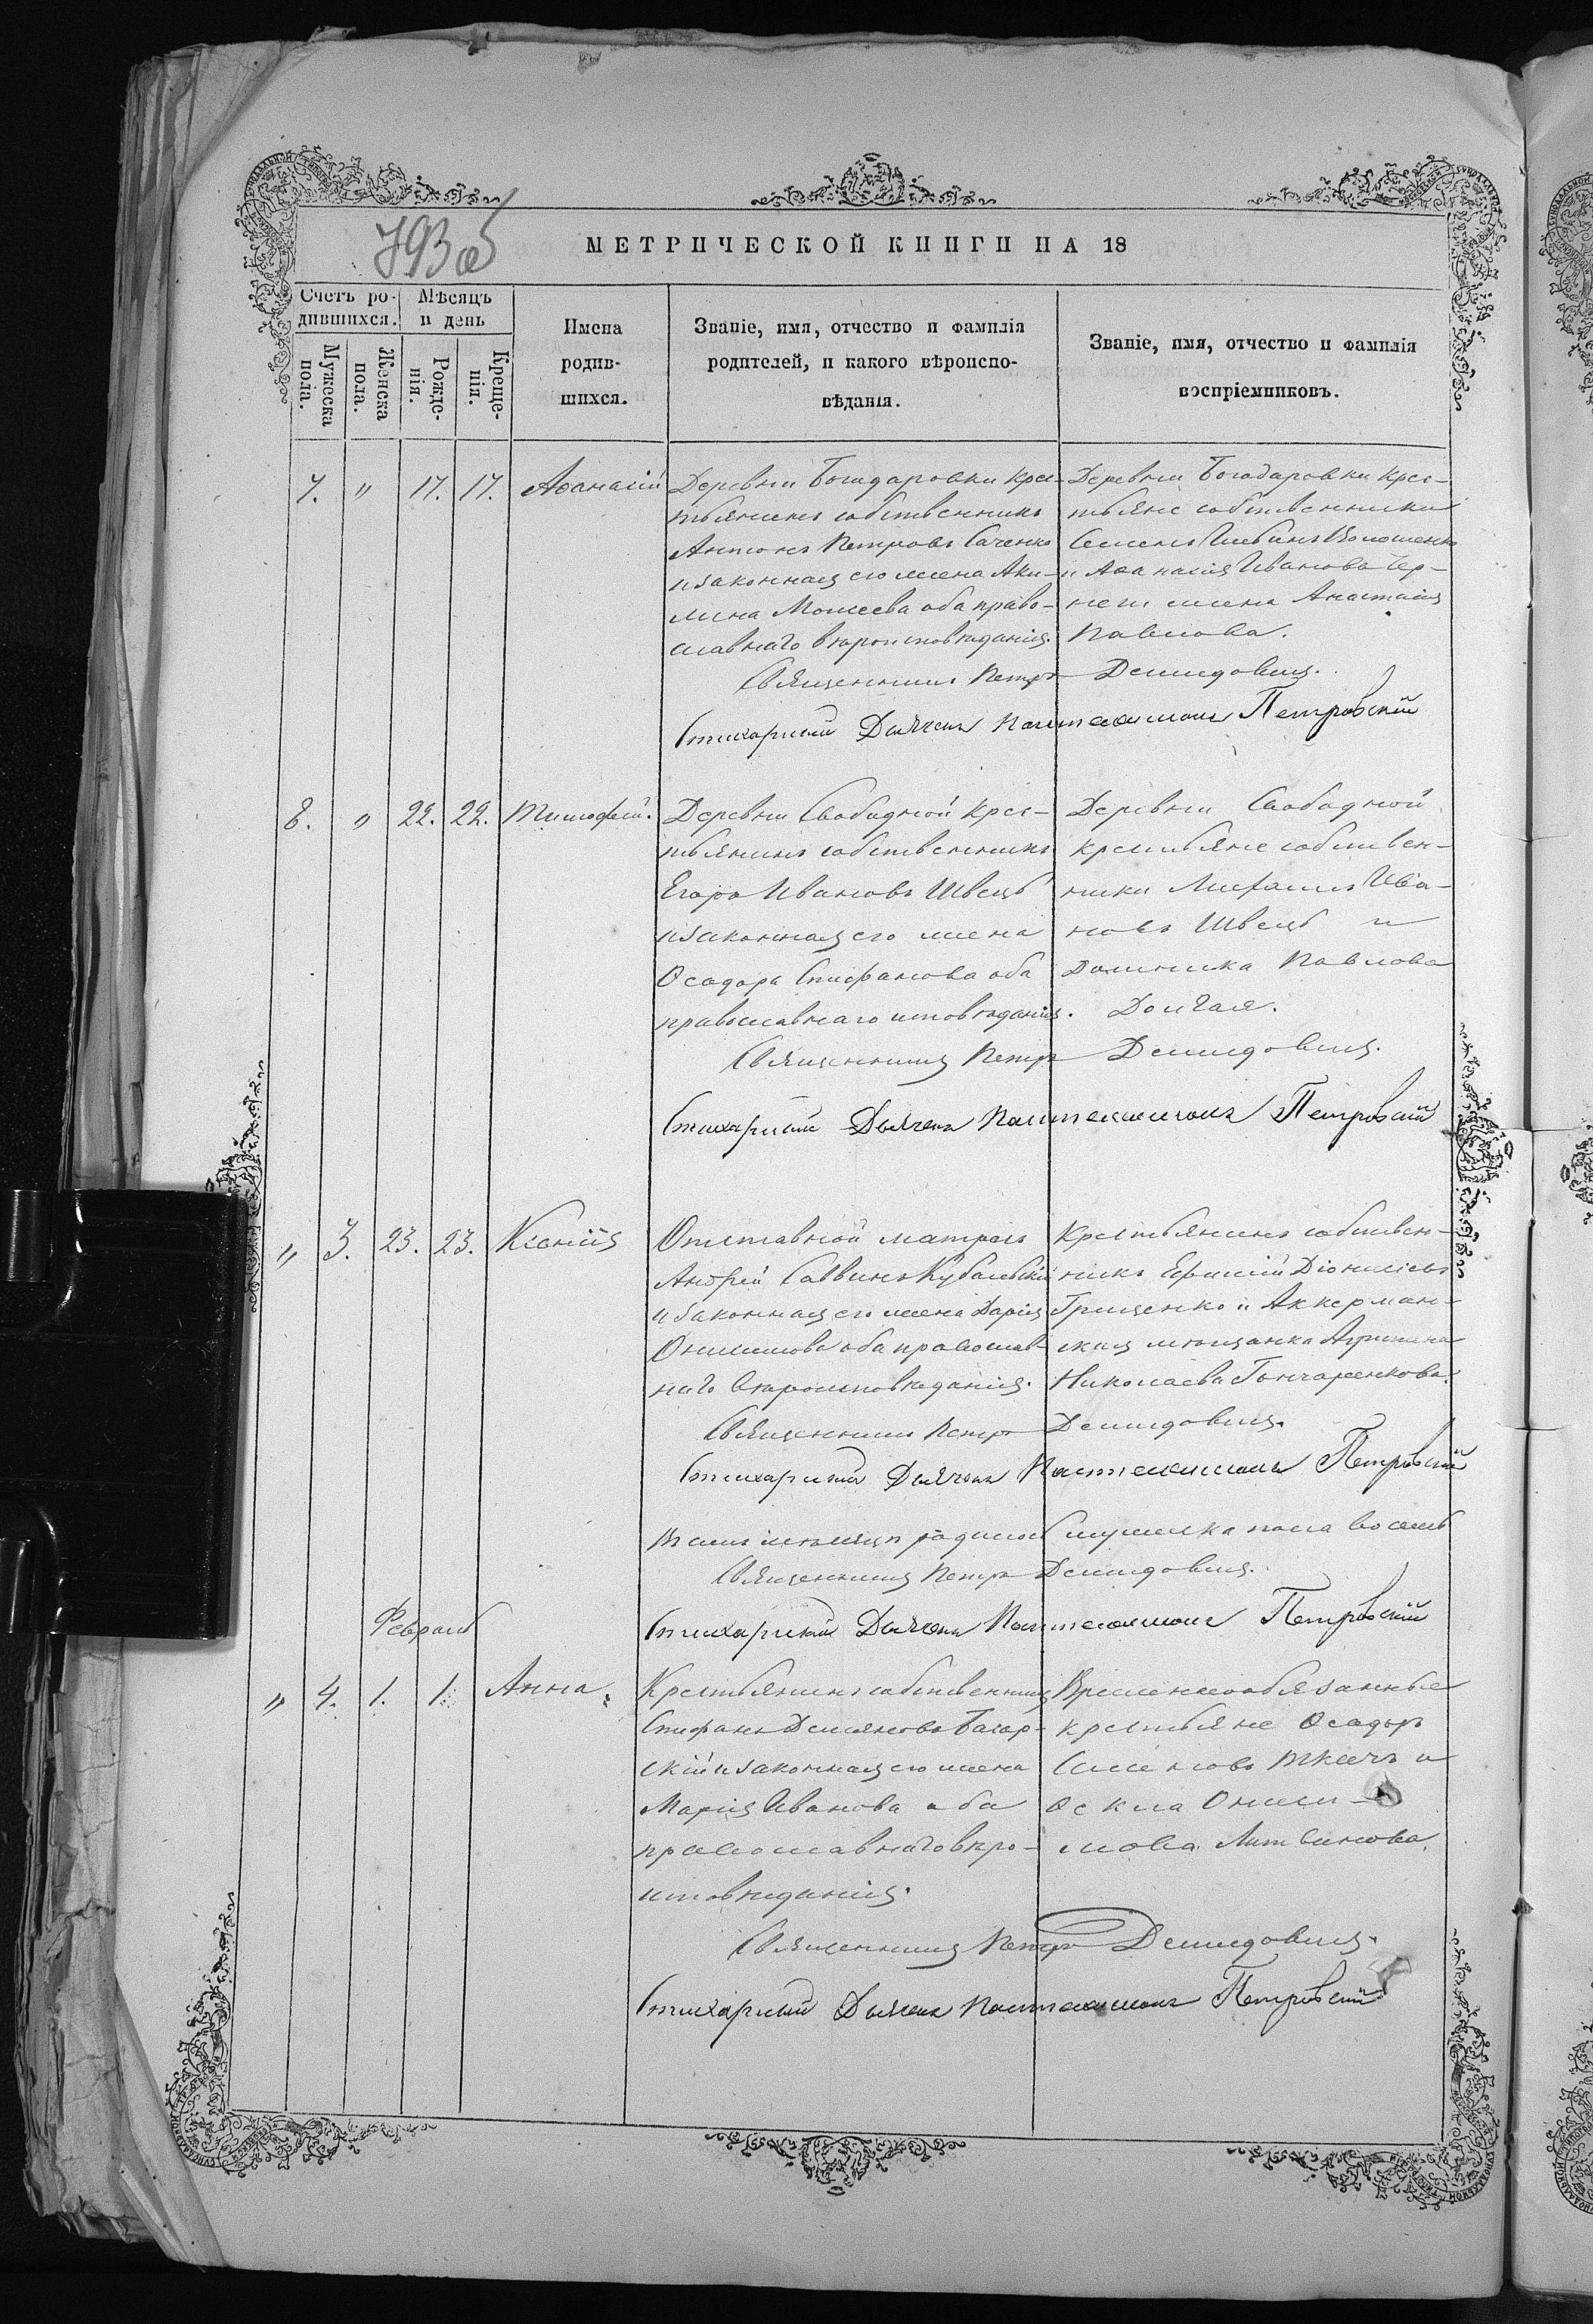 793 об
МЕТРИЧЕСКОЙ КНИГИ НА 18
Счетъ ро-
дившихся.
Мужеска
пола.
Женска
пола.
Мѣсяцъ
и день
Рожде-
нія.
Креще-
нія.
Имена
родив-
шихся.
Званіе, имя, отчество и фамилія
родителей, и какого вѣроиспо-
вѣданія.
Званіе, имя, отчество и фамилія
воспріемниковъ.
7. " 17. 17. Аѳанасій
Деревни Богодаровки крес-
тьянинъ собственникъ
Антонъ Петровъ Саченко
и законная его жена Аки-
лина Моисеева оба право-
славнаго вѣроисповѣданія.
Деревни Богодаровки крес-
тьяне собственники
Семенъ Глебинъ Волошенко
и Аѳанасія Иванова Чер-
неги жена Анастасія
Павлова.
Священникъ Петръ Демидовичъ.
Стихарный Дьячекъ Пантелеимонъ Петровскій
8. " 22. 22. Тимофей.
Деревни Свободной крес-
тьянинъ собственникъ
Егоръ Ивановъ Швецъ
и законная его жена
Ѳеодора Стефанова оба
православнаго исповѣданія.
Деревни Свободной
крестьяне собствен-
ники Михаилъ Ива-
новъ Швецъ и
Домника Павлова
Долгая.
Священникъ Петръ Демидовичъ.
Стихарный Дьячекъ Пантелеимонъ Петровскій
" 3. 23. 23. Ксенія
Отставной матросъ
Андрей Саввинъ Кубалскій
и законная его жена Дарія
Онисимова оба православ-
наго вѣроисповѣданія.
Крестьянинъ собствен-
никъ Ефимій Діонисіевъ
Грищенко и Аккерман-
ская мѣщанка Агрипина
Николаева Гончаренкова.
Священникъ Петръ Демидовичъ.
Стихарный Дьячекъ Пантелеимонъ Петровскій
родилось мужеска пола восемь
Священникъ Петръ Демидовичъ.
Стихарный Дьячекъ Пантелеимонъ Петровскій
Февраль
" 4. 1. 1. Анна.
Крестьянинъ собственникъ
Стефанъ Демяновъ
и законная его жена
Марія Иванова оба
православнаго вѣро-
исповѣданія.
Временнообязанные
крестьяне Ѳеодоръ
Семеновъ Ткачъ и
Ѳекла Ониси-
мова Литвинова.
Священникъ Петръ Демидовичъ.
Стихарный Дьячекъ Пантелеимонъ Петровскій